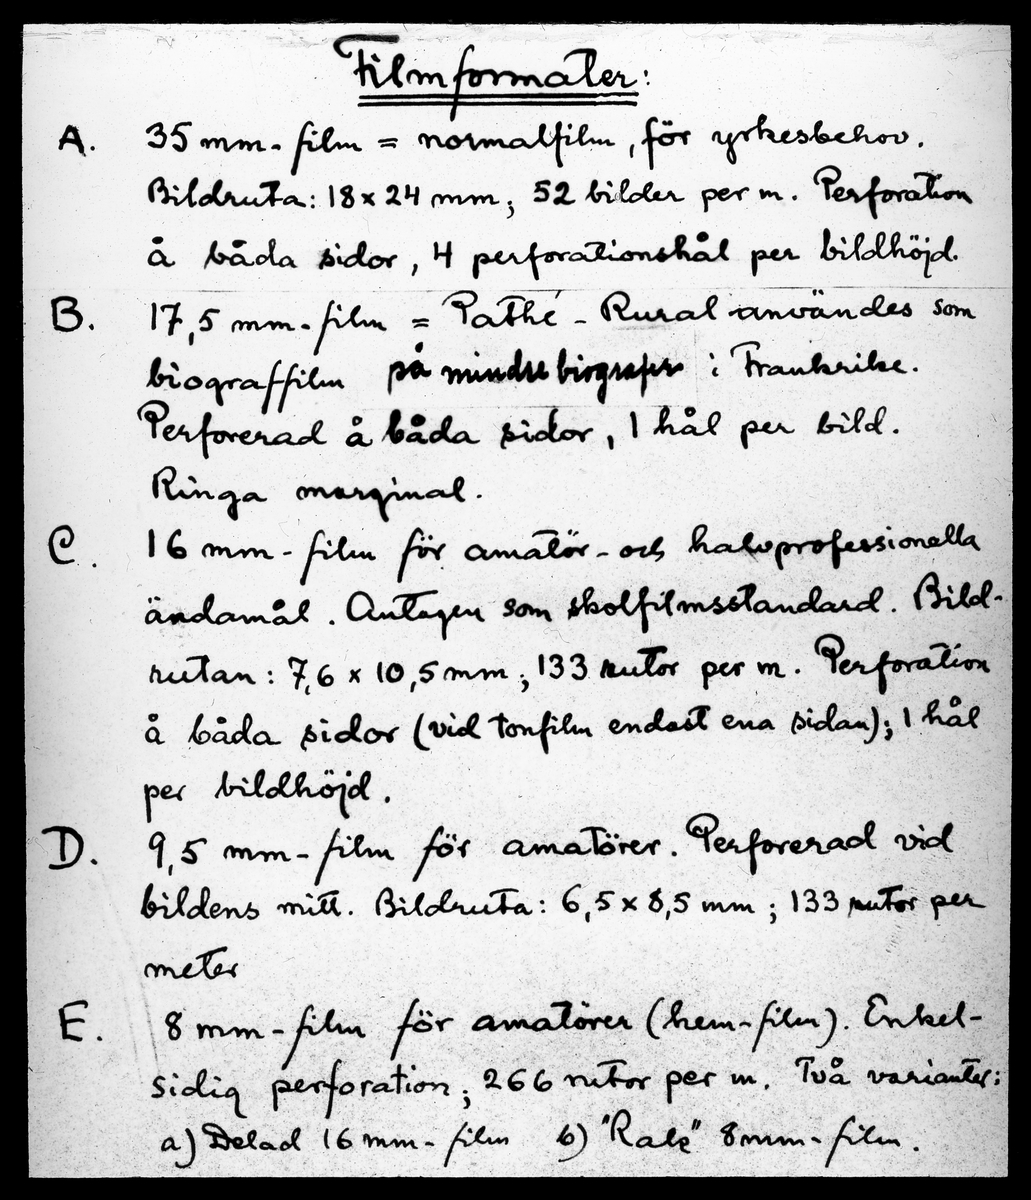 Filmformater:
A. 35 mm-film = normalfilm, för yrkesbehov.
Bildruta: 18 x 24 mm; 52 bilder per m. Perforation
å båda sidor, 4 perforationshål per bildhöjd.
B. 17,5 mm-film = Pathé-Rural användes som
biograffilm på mindre biografer i Frankrike.
Perforerad å båda sidor, 1 hål per bild.
Ringa marginal.
C. 16 mm-film för amatör- och halvprofessionella
ändamål. Antagen som skolfilmsstandard. Bild-
rutan: 7,6 x 10,5 mm; 133 rutor per m. Perforation
å båda sidor (vid tonfilm endast ena sidan); 1 hål
per bildhöjd.
D. 9,5 mm-film för amatörer. Perforerad vid
bildens mitt. Bildruta: 6,5 x 8,5 mm; 133 rutor per
meter
E. 8 mm-film för amatörer (hem-film). Enkel-
sidig perforation; 266 rutor per m. Två varianter:
a) Delad 16 mm-film b) "Rak" 8mm-film.